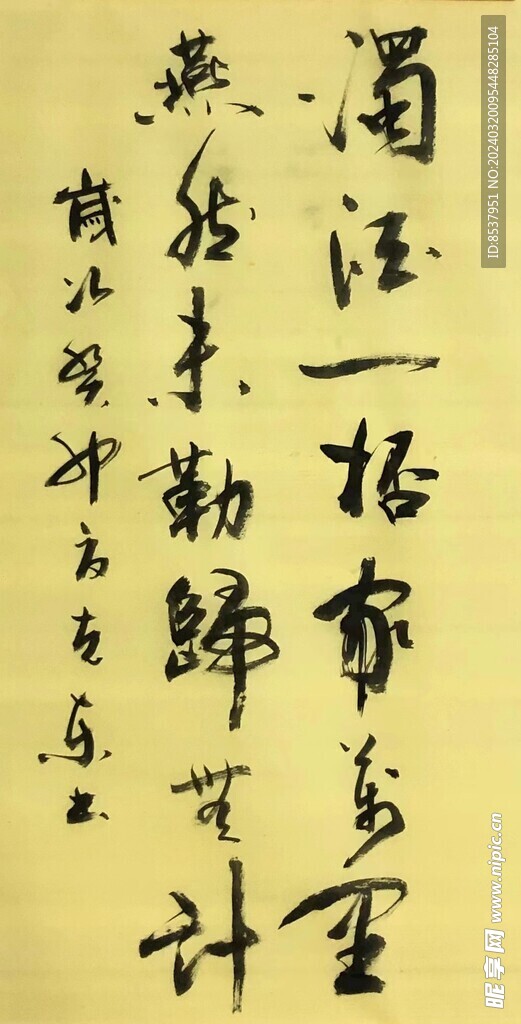 濁酒一杯家萬里
燕然未勒歸無計
歲次癸卯方克東書
ID:8537951 NO:20240320095448285104
昵享网 www.nipic.cn